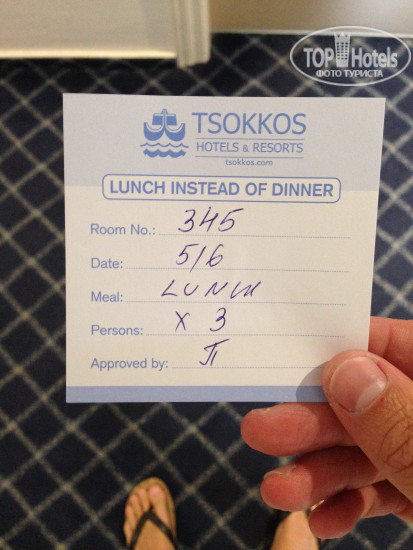 TOP Hotels
ФОТО ТУРИСТА
TSOKKOS
HOTELS & RESORTS
tsokkos.com
LUNCH INSTEAD OF DINNER
Room No.: 345
Date: 5/6
Meal: LUNCH
Persons: X 3
Approved by: